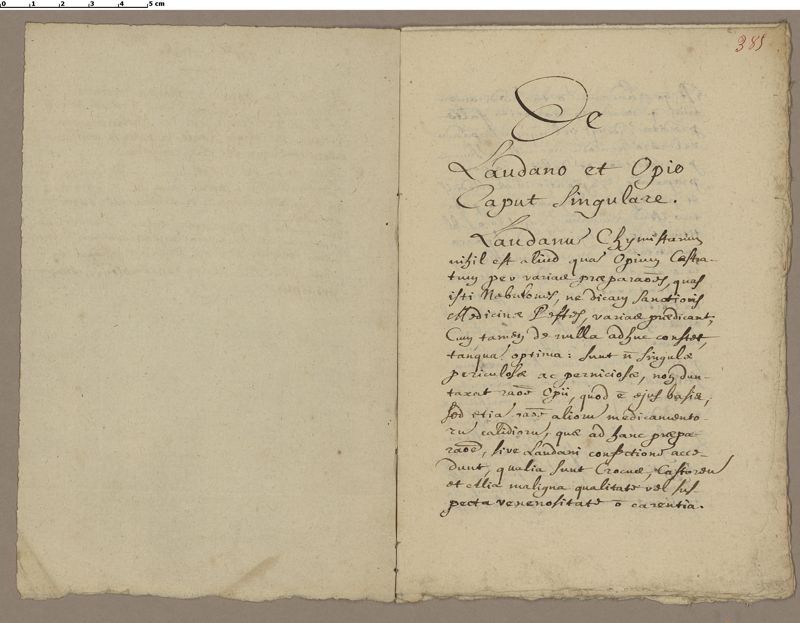 0 1 2 3 4 5 cm
385
De
Laudano et Opio
Caput Singulare.
Laudanū Chymistarum
nihil est aliud quā Opium Castra-
tum per varias præparaōes, quas
isti Nebulones, ne dicam sanctioris
Medicinæ Pestes, varias prædicant,
Cum tamen de nulla adhuc constet,
tanquā optima: sunt n̄ singulæ
periculosæ ac perniciosæ, non dun-
taxat raōe Opii, quod ē ejus basis,
sed etiā raōe aliorū medicamento-
rū calidiorū, quæ ad hanc præpa
raōe, sive Laudani confectionē acce-
dunt, qualia sunt Crocus, Castoreū
et alia maligna qualitate vel sus
pecta venenositate ō carentia.